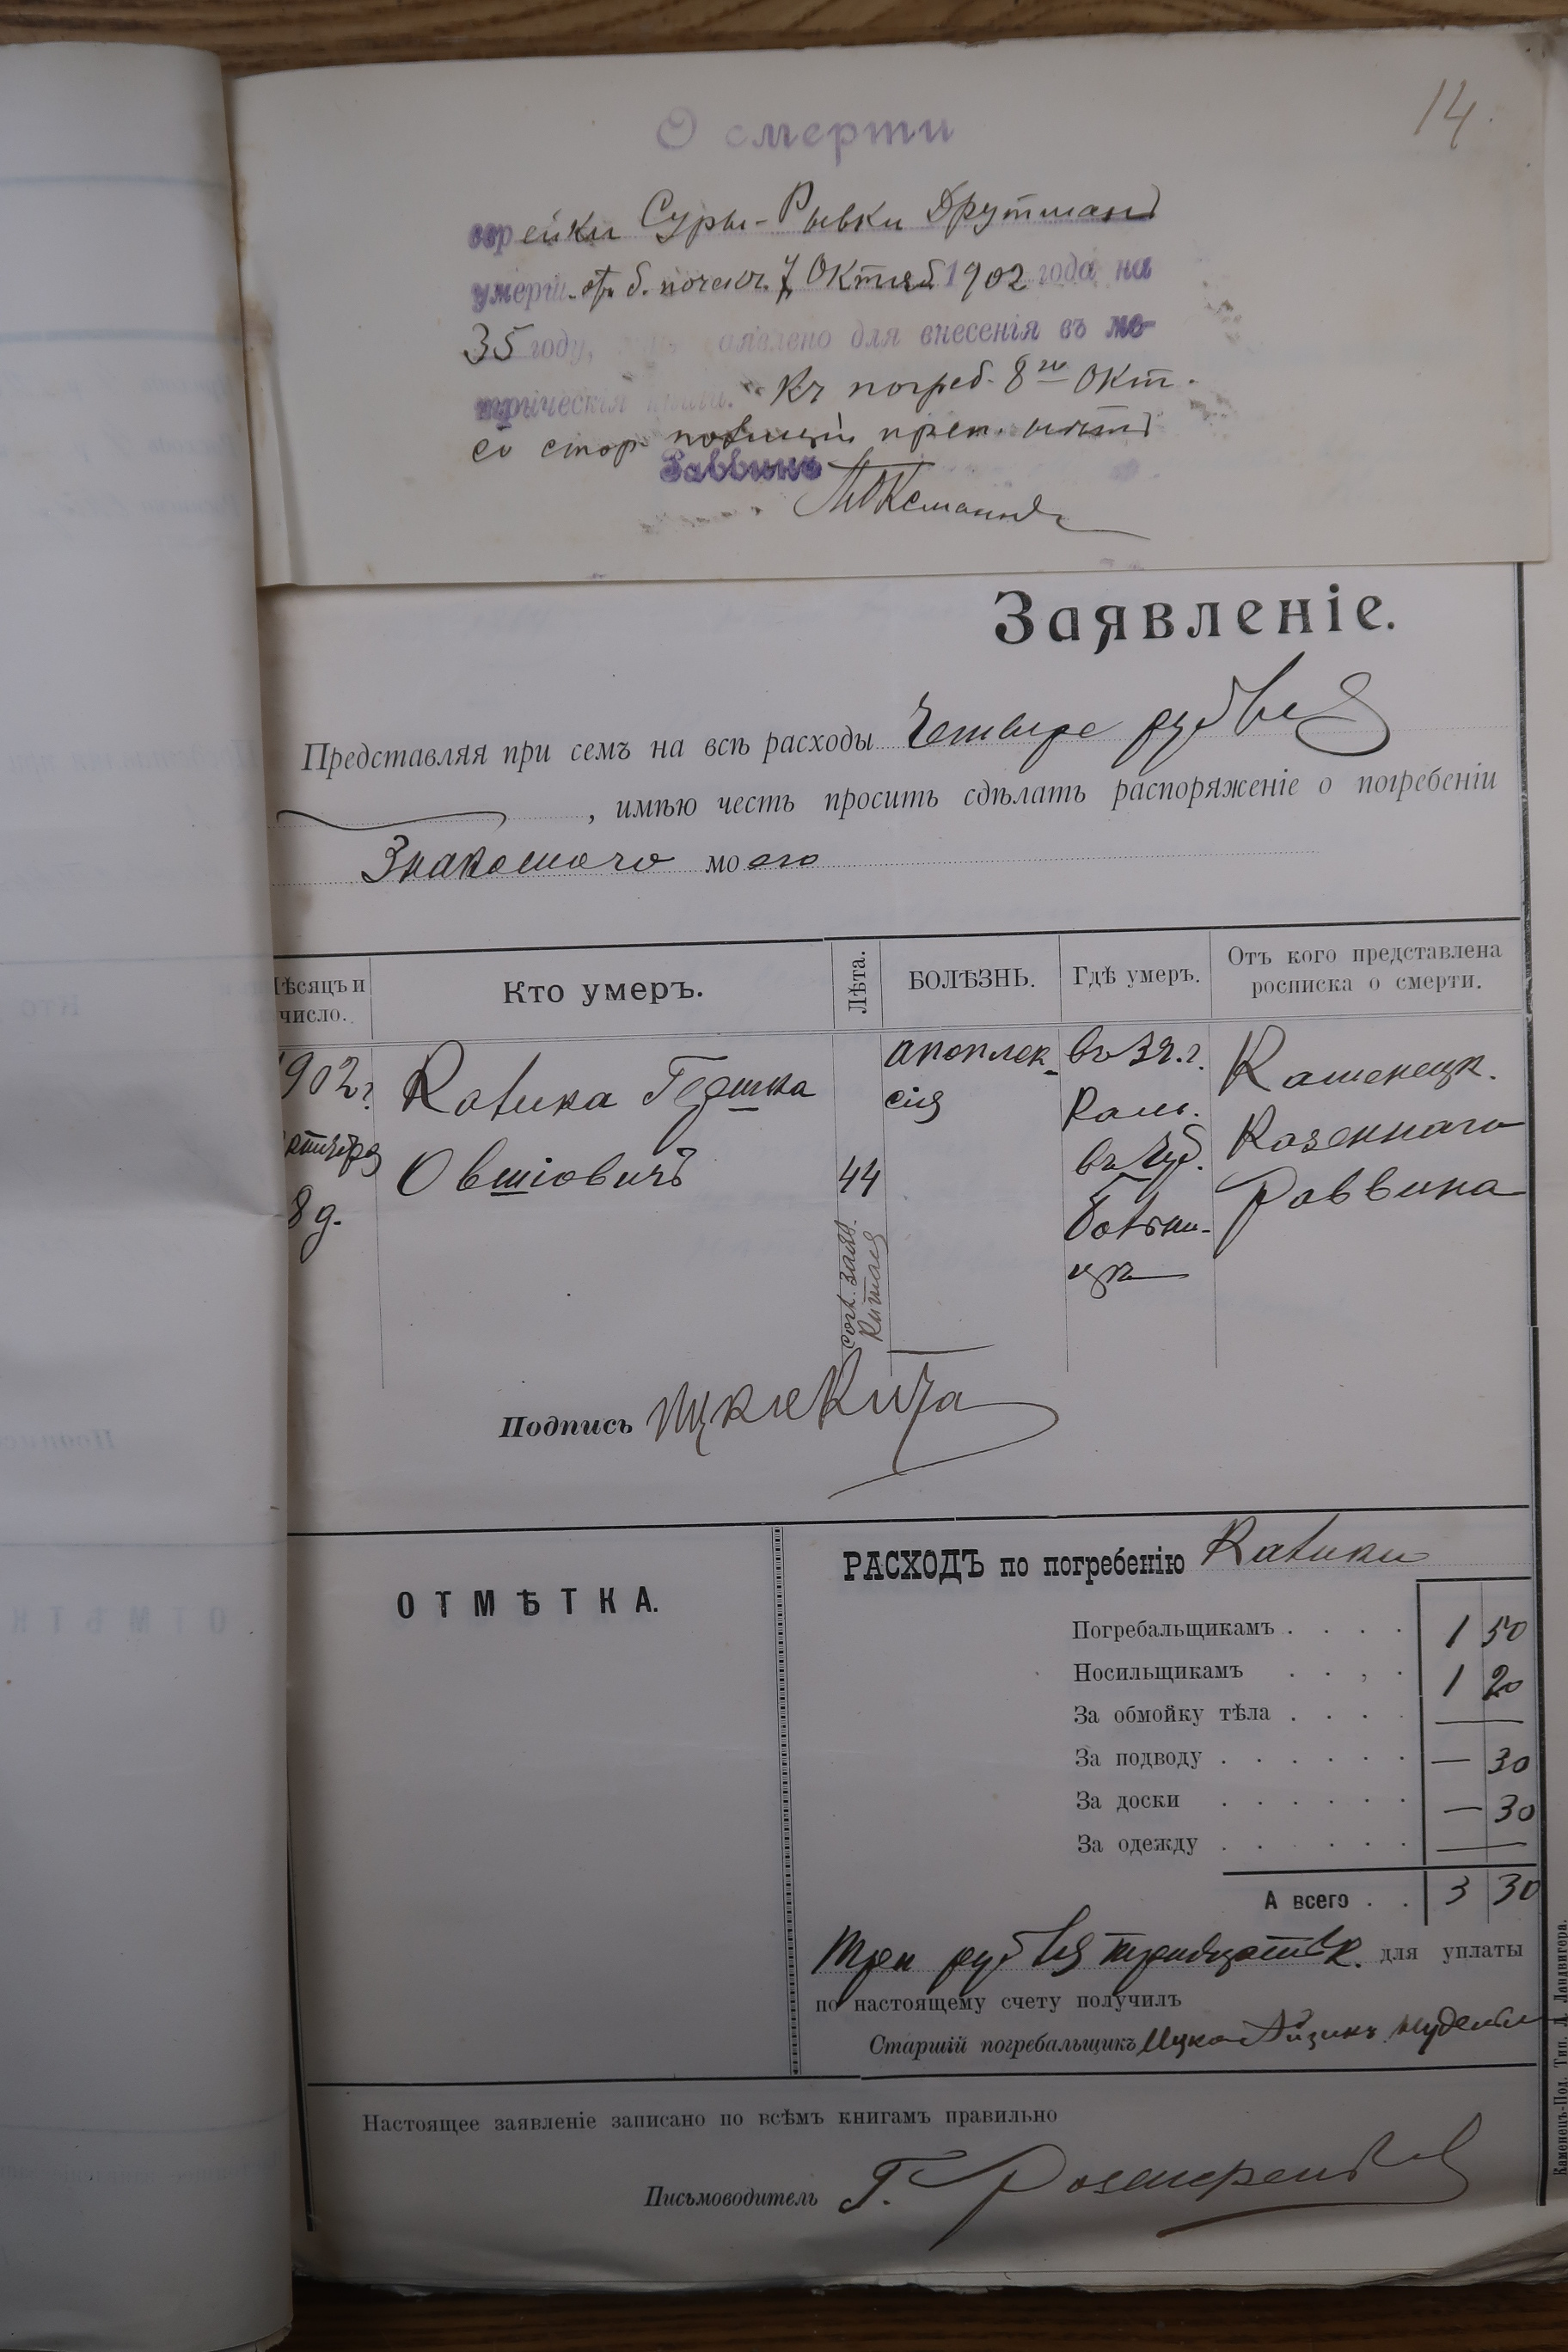 14.
О смерти
еврейки Суры-Рывки Друтманъ
умерш. 7 Октяб. 1902 года на
35 году, заявлено для внесенія въ ме-
трическія книги. Къ погреб. 8го Окт.
со стор. полиціи преп. нѣтъ
Раввинъ
Заявленіе.
Представляя при семъ на всѣ расходы Четыре рубля
, имѣю честь просить сдѣлать распоряженіе о погребеніи
Знакомаго моего
Мѣсяцъ и число.
Кто умеръ.
Лѣта.
БОЛѢЗНЬ.
Гдѣ умеръ.
Отъ кого представлена росписка о смерти.
1902 г.
Октября
8 д.
Калика Гершка
Овшіовичъ
44
согл. заяв.
апоплек-
сія
въ зд. г.
Кам.
въ Гор.
больни-
цѣ
Каменецк.
Казеннаго
Раввина
Подпись
ОТМѢТКА.
РАСХОДЪ по погребенію Калики
Погребальщикамъ . . . . 1 50
Носильщикамъ . . . . 1 20
За обмойку тѣла . . . . —
За подводу . . . . . . — 30
За доски . . . . . . — 30
За одежду . . . . . . —
А всего . . 3 30
Три рубля тридцать к. для уплаты
по настоящему счету получилъ
Старшій погребальщикъ Ицко Айзикъ
Настоящее заявленіе записано по всѣмъ книгамъ правильно
Письмоводитель Г.
Каменецъ-Под. Тип. Л. Ландвигера.